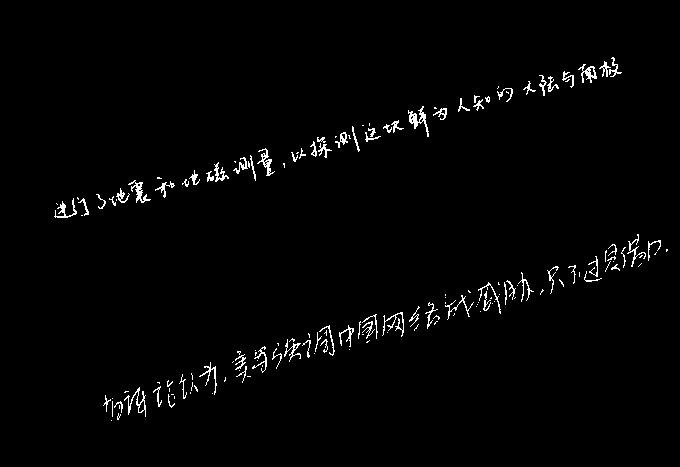 进行了地震和地磁测量，以探测这块鲜为人知的大陆与南极
认为，美等强调中国网络威胁，只不过是借口．